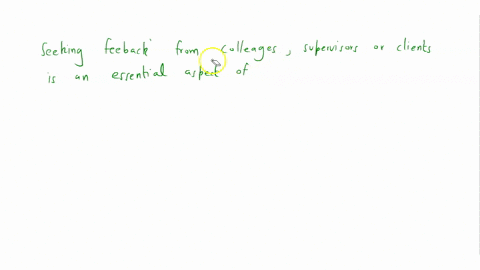 Seeking feeback from colleages, supervisors or clients
is an essential aspect of